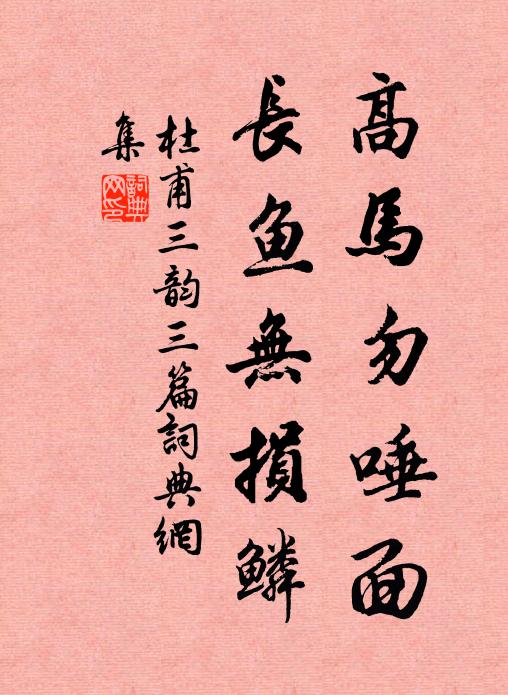 高馬勿唾面
長鱼無損鱗
杜甫三韵三篇詞典網
集
詞典
网印